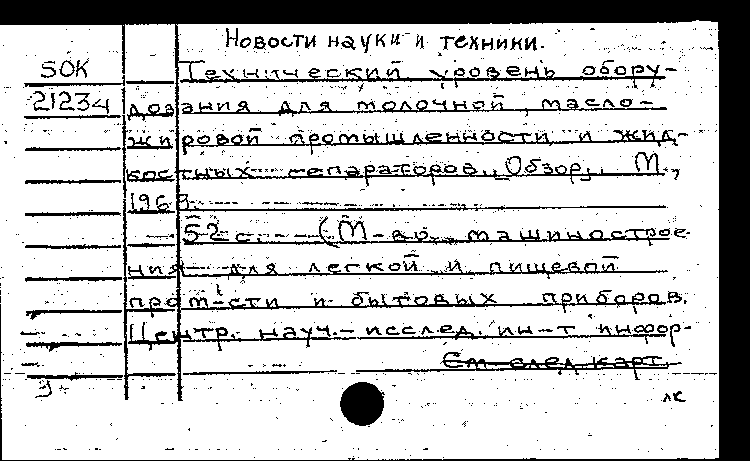 Новости науки и техники.
SOK Технический уровень обору-
21234 дования для молочной, масло-
жировой промышленности и жид-
костных сепараторов. Обзор. М.,
1969.
52 с. (М-во машинострое
ния для легкой и пищевой
пром-сти и бытовых приборов.
Центр. науч.-исслед. ин-т инфор-
См след карт.
лк